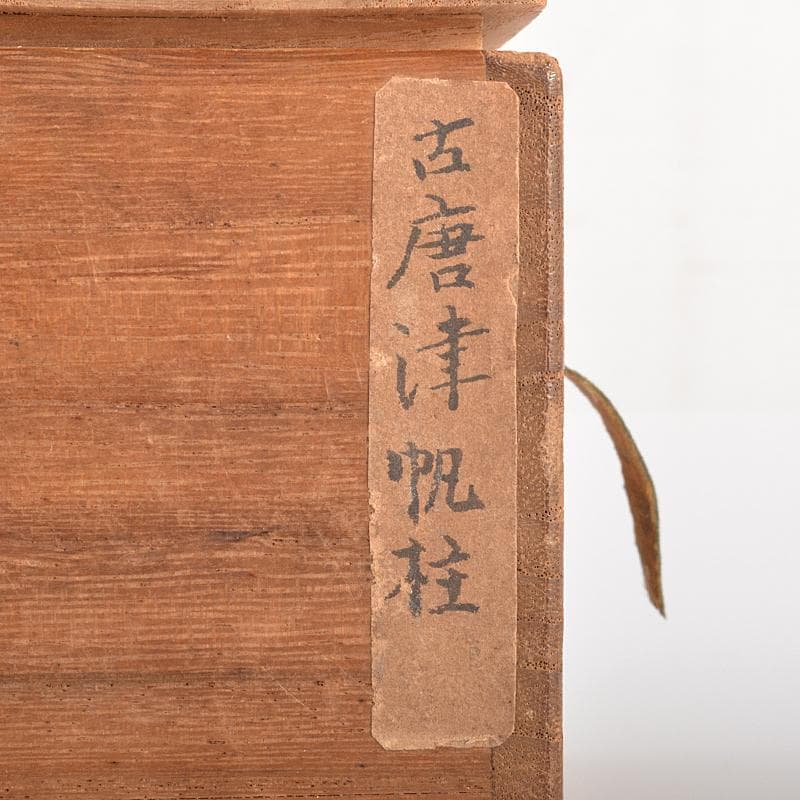 古唐津帆柱